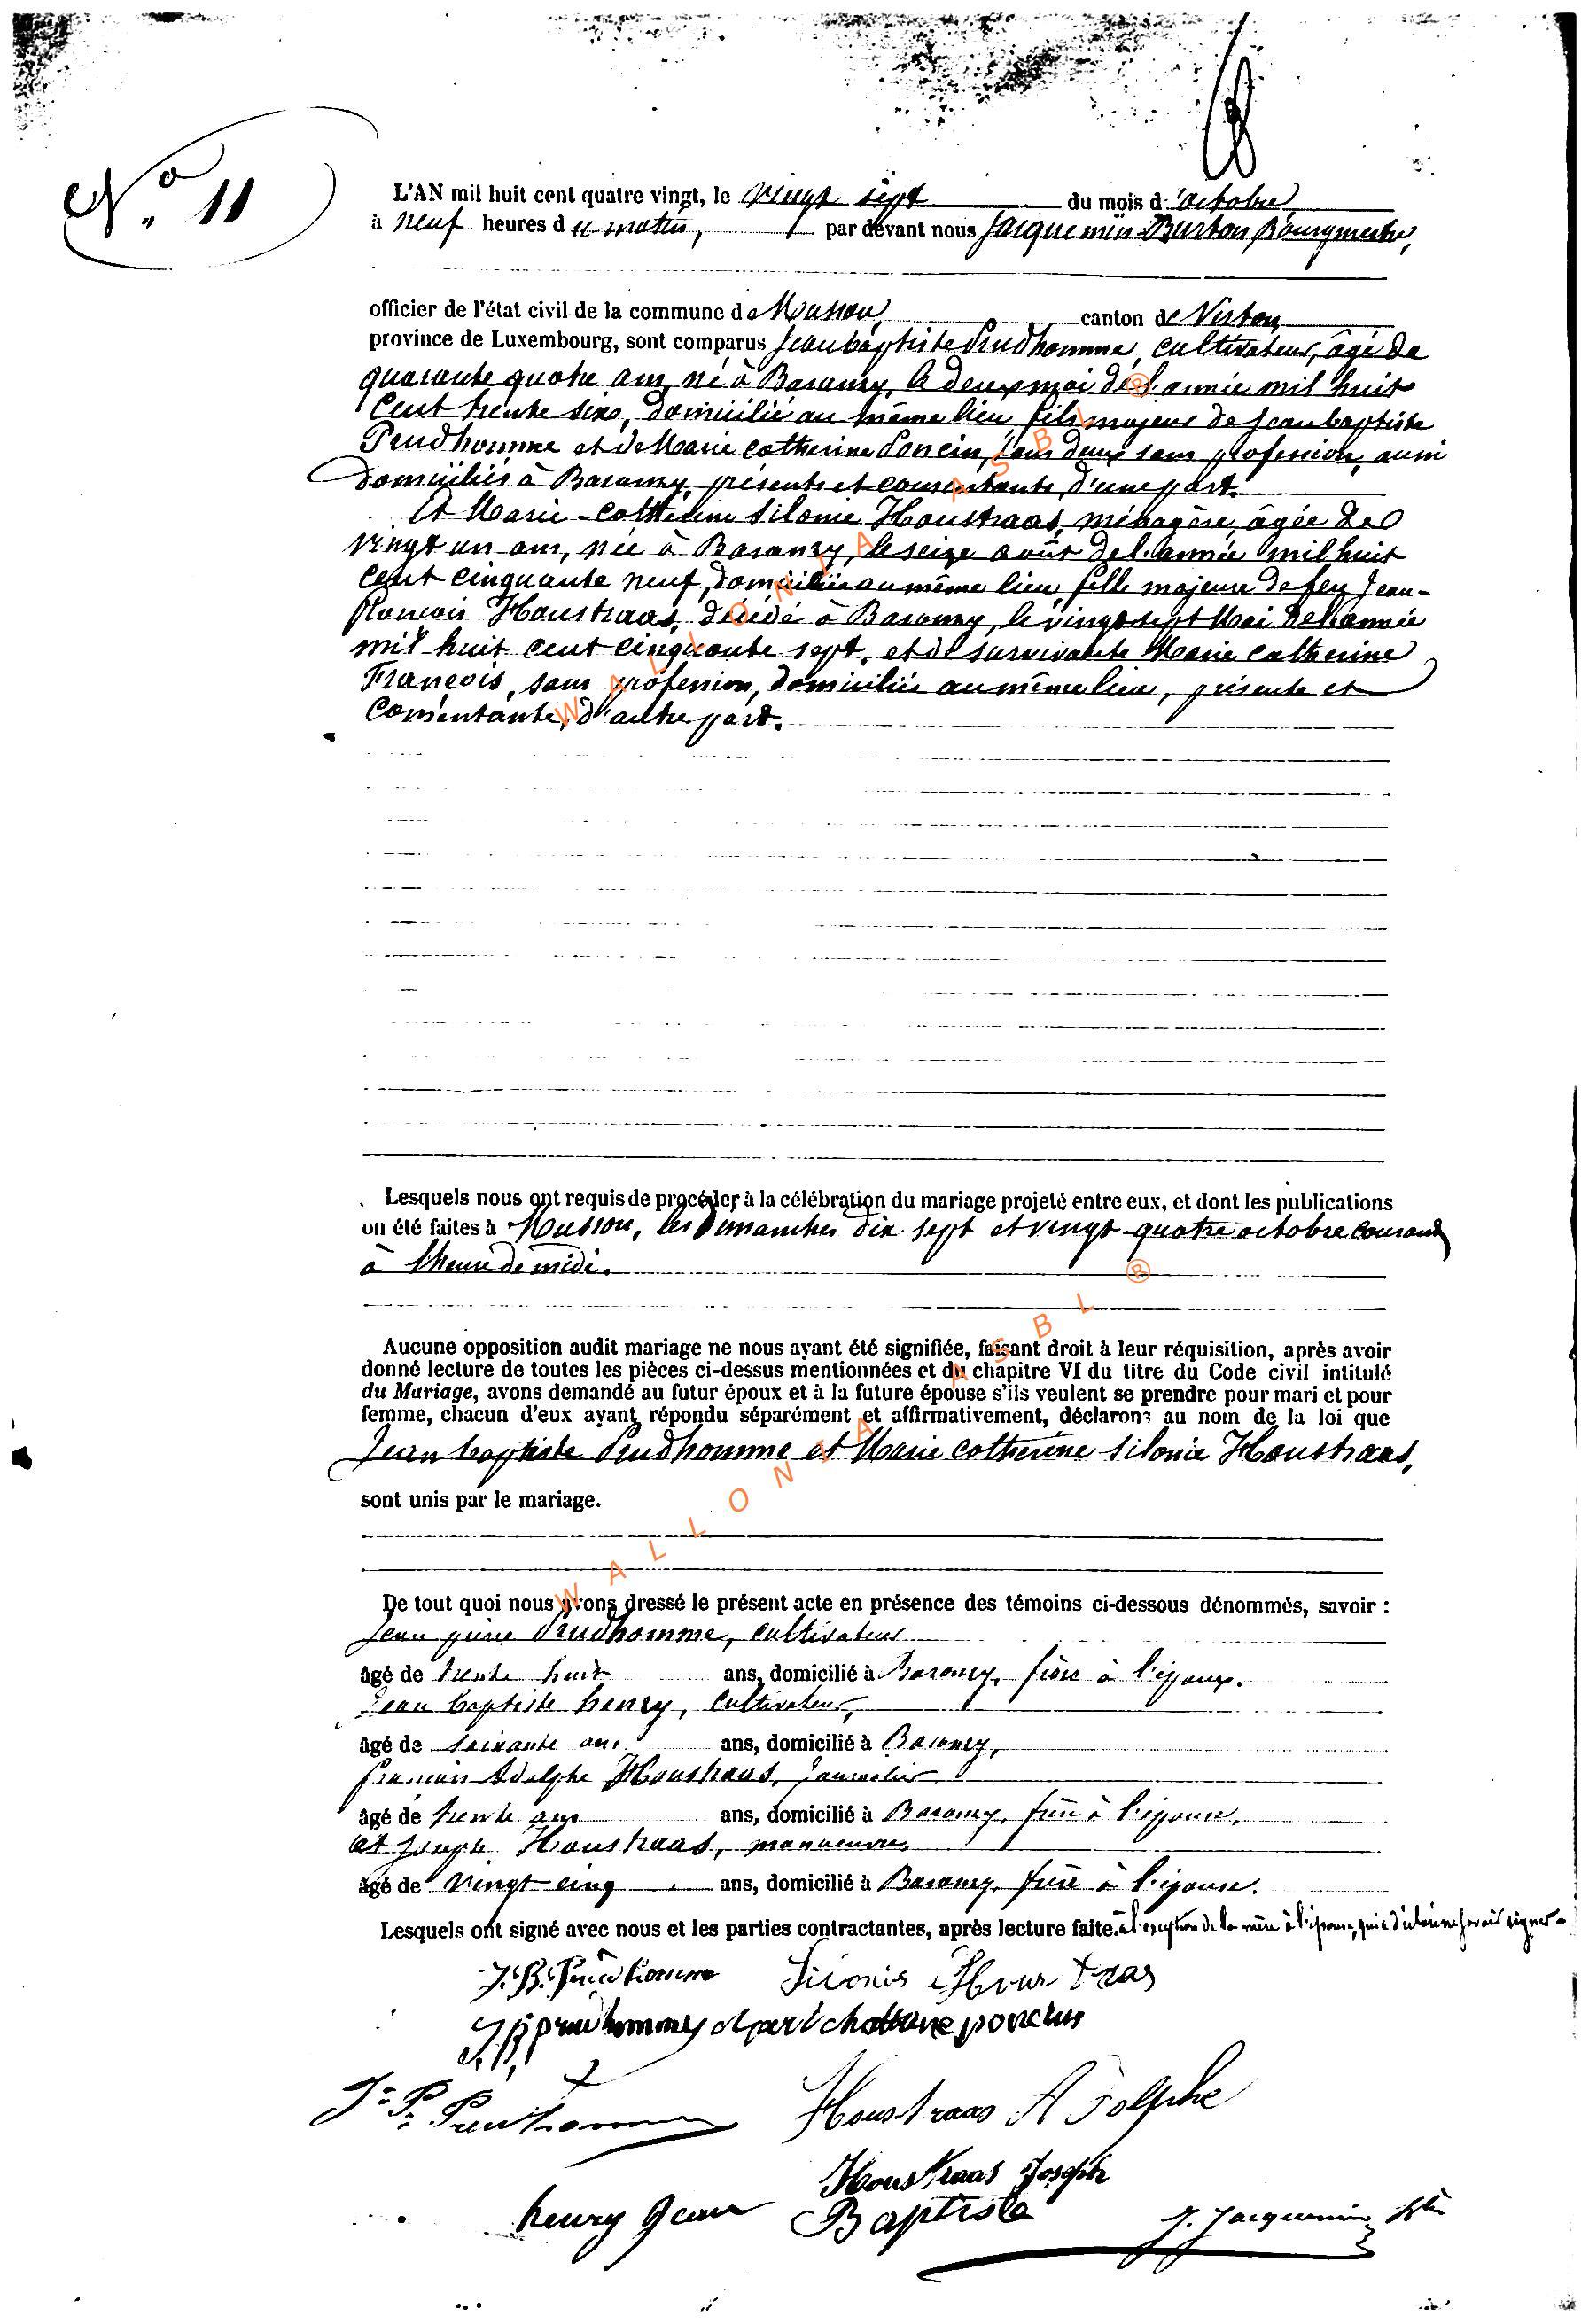 N.o 11
L'AN mil huit cent quatre vingt, le vingt sept du mois d'octobre
à neuf heures du matin, par devant nous Jacquemin-Burton Bourgmestre,
officier de l'état civil de la commune de Musson, canton de Virton,
province de Luxembourg, sont comparus Jean baptiste Prudhomme, cultivateur, âgé de
quarante quatre ans, né à Baranzy, le deux mai de l'année mil huit
cent trente six, domicilié au même lieu, fils majeur de Jean baptiste
Prudhomme et de Marie catherine Poncin, tous deux sans profession, aussi
domiciliés à Baranzy, présents et consentants, d'une part.
Et Marie-catherine Silonie Houstraas, ménagère, âgée de
vingt un ans, née à Baranzy, le seize août de l'année mil huit
cent cinquante neuf, domiciliée au même lieu, fille majeure de feu Jean-
François Houstraas, décédé à Baranzy, le vingt sept Mai de l'année
mil huit cent cinquante sept, et de survivante Marie catherine
François, sans profession, domiciliée au même lieu, présente et
consentante, d'autre part.
Lesquels nous ont requis de procéder à la célébration du mariage projeté entre eux, et dont les publications
on été faites à Musson, les Dimanches dix sept et vingt-quatre octobre courant
à l'heure de midi.
Aucune opposition audit mariage ne nous ayant été signifiée, faisant droit à leur réquisition, après avoir
donné lecture de toutes les pièces ci-dessus mentionnées et du chapitre VI du titre du Code civil intitulé
du Mariage, avons demandé au futur époux et à la future épouse s'ils veulent se prendre pour mari et pour
femme, chacun d'eux ayant répondu séparément et affirmativement, déclarons au nom de la loi que
Jean baptiste Prudhomme et Marie catherine Silonie Houstraas,
sont unis par le mariage.
De tout quoi nous avons dressé le présent acte en présence des témoins ci-dessous dénommés, savoir :
Jean pierre Prudhomme, cultivateur
âgé de trente huit ans, domicilié à Baranzy, frère à l'époux.
Jean baptiste henry, cultivateur,
âgé de soixante ans ans, domicilié à Baranzy,
françois Adolphe Houstraas, journalier
âgé de trente ans ans, domicilié à Baranzy, frère à l'épouse.
et Joseph Houstraas, manoeuvre,
âgé de vingt cinq ans, domicilié à Baranzy, frère à l'épouse.
Lesquels ont signé avec nous et les parties contractantes, après lecture faite. à l'exception de la mère à l'épouse, qui a déclaré ne savoir signer.
J. B. Prudhomme Silonie Houstras
J B prudhomme Mari chatrine poncin
J. P. Prudhomme Houstraas Adolphe
Houstraas Joseph
henry Jean Baptiste J. Jacquemin Btn
WALLONIA ASBL ®
WALLONIA ASBL ®